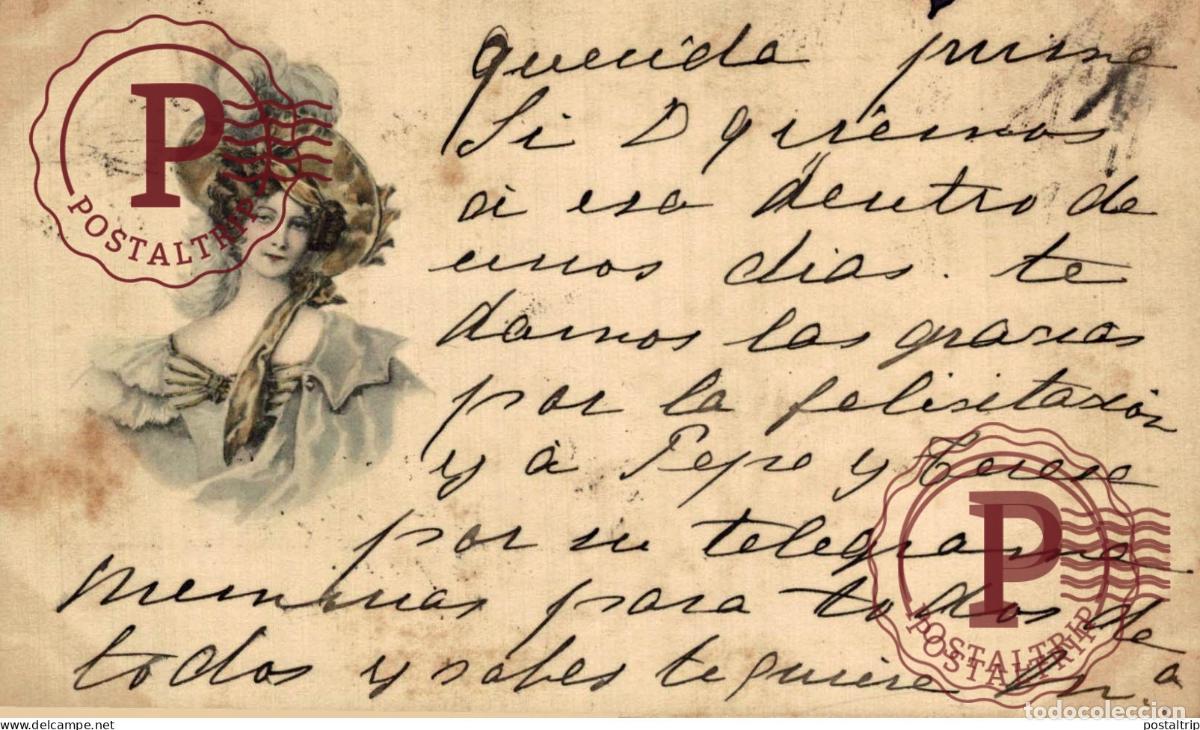 P
POSTALTRIP
querida prima
Si D quiere iremos
á esa dentro de
unos dias. te
damos las grasias
por la felisitaxión
y á Pepe y Terese
por su telegrama
Memorias para todos de
todos y sabes te quiere Mª
P
POSTALTRIP
todocoleccion
www.delcampe.net
postaltrip